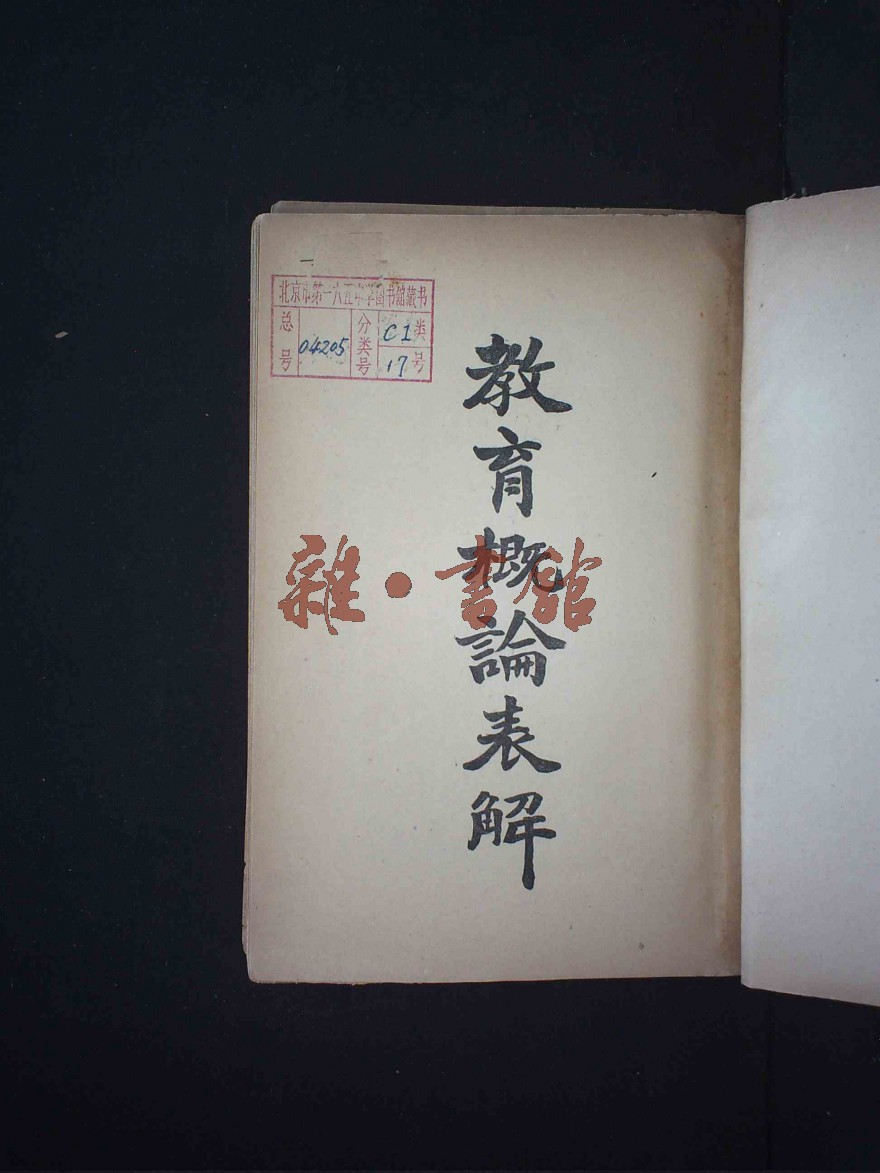 北京市第一六五中学图书馆藏书
总号 04205 分类号 C1类 17号
教育概論表解
雜·書館